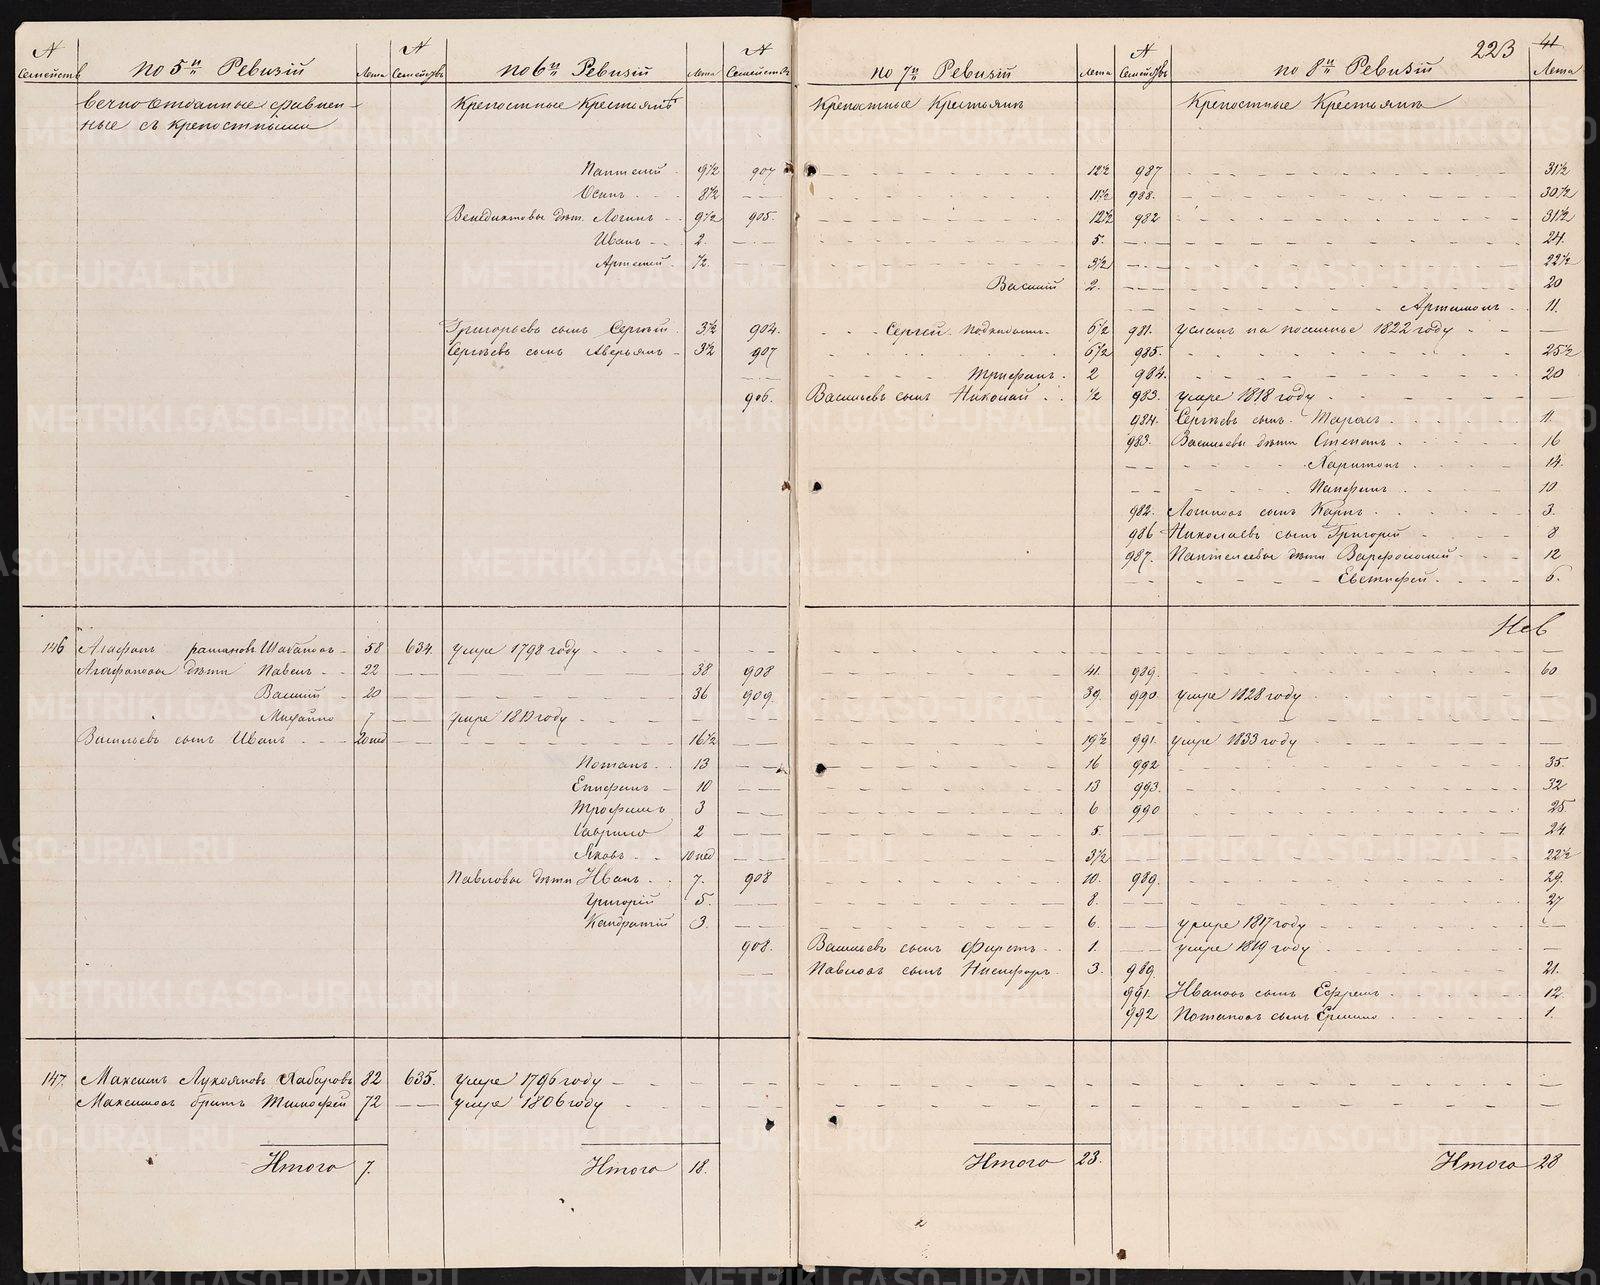 № Семействъ | по 5й Ревизiи | Лета | № Семействъ | по 6й Ревизiи | Лета | № Семействъ | по 7й Ревизiи | Лета | № Семействъ | по 8й Ревизiи | 223 | 41 Лета
вечно отданные сравнен- | Крепостные Крестьянъ | Крепостные Крестьянъ | Крепостные Крестьянъ
ные съ крепостными
Пантелей | 9½ | 907 | 12½ | 987 | 31½
Осипъ | 8½ | 11½ | 988. | 30½
Венедиктовы дѣти Логинъ | 9½ | 905. | 12½ | 982 | 31½
Иванъ | 2. | 5. | 24.
Артемiй | ½. | 3½ | 22½
Василiй | 2. | 20
Артамонъ | 11.
Григорьевъ сынъ Сергѣй | 3½ | 904. | Сергей Подкидышъ | 6½ | 981. | усланъ на поселенье 1822 году
Сергѣевъ сынъ Аверьянъ | 3½ | 907 | 6½ | 985. | 25½
Трифанъ | 2 | 984. | 20
906. | Васильевъ сынъ Николай | ½ | 983. | умре 1818 году
984. | Сергѣевъ сынъ Тарасъ | 11.
983. | Васильевы дѣти Степанъ | 16
Харитонъ | 14.
Панфилъ | 10
982. | Логиновъ сынъ Карпъ | 3.
986 | Николаевъ сынъ Григорiй | 8
987. | Пантелеевы дѣти Варфоломей | 12
Евстифей | 6.
146 | Агафонъ | Шабановъ | 58 | 634. | умре 1798 году
Агафоновы дѣти Павелъ | 22 | 38 | 908 | 41. | 989. | 60
Василiй | 20 | 36 | 909. | 39. | 990. | умре 1828 году
Михайло | 7 | умре 1810 году
Васильевъ сынъ Иванъ | 20 нед | 16½ | 19½ | 991. | умре 1833 году
Потапъ | 13 | 16 | 992 | 35.
Епифанъ | 10 | 13 | 993. | 32
Трофимъ | 3 | 6 | 990 | 25.
Гаврило | 2 | 5. | 24.
Яковъ | 10 нед | 3½ | 22½
Павловы дѣти Иванъ | 7. | 908 | 10. | 989. | 29.
Григорiй | 5. | 8. | 27
Кандратiй | 3. | 6. | умре 1817 году
908. | Васильевъ сынъ Фирстъ | 1. | умре 1819 году
Павловъ сынъ Никифоръ | 3. | 989. | 21.
991. | Ивановъ сынъ Ефремъ | 12.
992 | Потаповъ сынъ Ермило | 1.
147. | Максимъ Лукояновъ Хабаровъ | 82 | 635. | умре 1796 году
Максимовъ братъ Тимофей | 72 | умре 1806 году
Итого 7. | Итого 18. | Итого 23. | Итого 28
METRIKI.GASO-URAL.RU